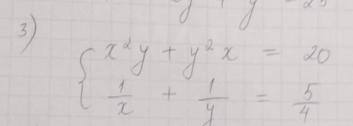 3)
{ x²y + y²x = 20
1/x + 1/y = 5/4